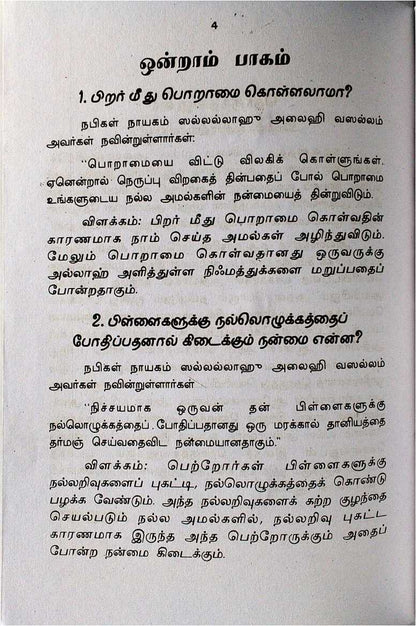 4
ஒன்றாம் பாகம்
1. பிறர் மீது பொறாமை கொள்ளலாமா?
நபிகள் நாயகம் ஸல்லல்லாஹு அலைஹி வஸல்லம்
அவர்கள் நவின்றுள்ளார்கள்:
“பொறாமையை விட்டு விலகிக் கொள்ளுங்கள்.
ஏனென்றால் நெருப்பு விறகைத் தின்பதைப் போல் பொறாமை
உங்களுடைய நல்ல அமல்களின் நன்மையைத் தின்றுவிடும்.
விளக்கம்: பிறர் மீது பொறாமை கொள்வதின்
காரணமாக நாம் செய்த அமல்கள் அழிந்துவிடும்.
மேலும் பொறாமை கொள்வதானது ஒருவருக்கு
அல்லாஹ் அளித்துள்ள நிஃமத்துக்களை மறுப்பதைப்
போன்றதாகும்.
2. பிள்ளைகளுக்கு நல்லொழுக்கத்தைப்
போதிப்பதனால் கிடைக்கும் நன்மை என்ன?
நபிகள் நாயகம் ஸல்லல்லாஹு அலைஹி வஸல்லம்
அவர்கள் நவின்றுள்ளார்கள்
“நிச்சயமாக ஒருவன் தன் பிள்ளைகளுக்கு
நல்லொழுக்கத்தைப் போதிப்பதானது ஒரு மரக்கால் தானியத்தை
தர்மஞ் செய்வதைவிட நன்மையானதாகும்.”
விளக்கம்: பெற்றோர்கள் பிள்ளைகளுக்கு
நல்லறிவுகளைப் புகட்டி, நல்லொழுக்கத்தைக் கொண்டு
பழக்க வேண்டும். அந்த நல்லறிவுகளைக் கற்ற குழந்தை
செயல்படும் நல்ல அமல்களில், நல்லறிவு புகட்ட
காரணமாக இருந்த அந்த பெற்றோருக்கும் அதைப்
போன்ற நன்மை கிடைக்கும்.